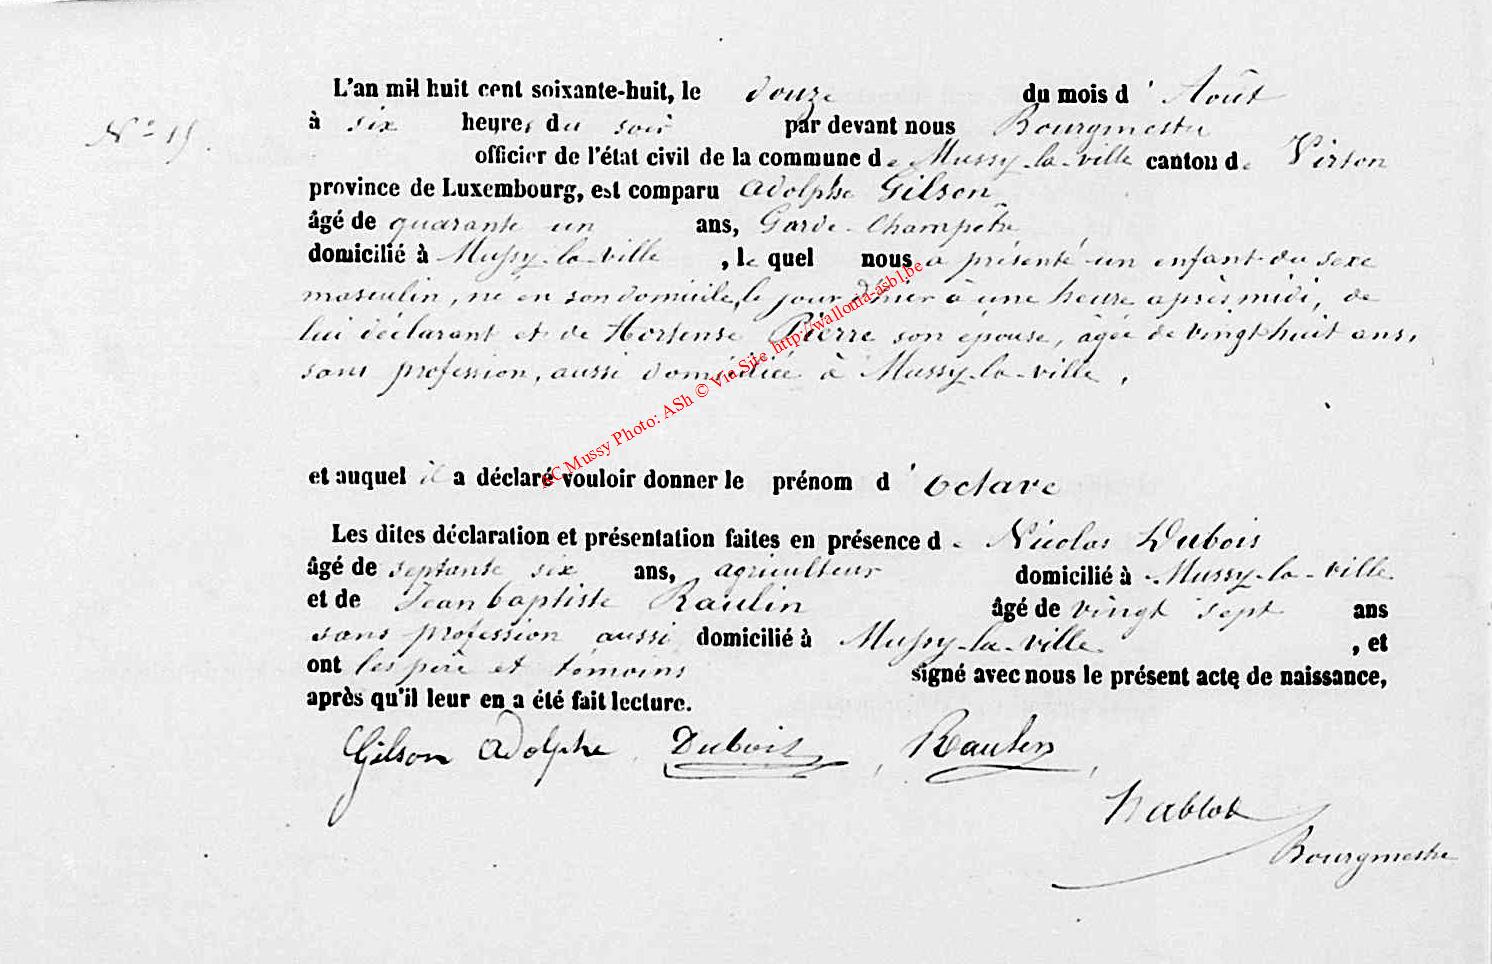 L'an mil huit cent soixante-huit, le douze du mois d' Août
N° 15. à six heures du soir par devant nous Bourgmestre
officier de l'état civil de la commune de Mussy-la-ville canton de Virton
province de Luxembourg, est comparu Adolphe Gilson
âgé de quarante un ans, Garde-Champêtre
domicilié à Mussy-la-ville , le quel nous a présenté un enfant du sexe
masculin, né en son domicile, le jour d'hier à une heure après midi, de
lui déclarant et de Hortense Pierre son épouse, âgée de vingt huit ans,
sans profession, aussi domiciliée à Mussy-la-ville,
RC Mussy Photo: ASh © Via Site http://wallonia-asbl.be
et auquel il a déclaré vouloir donner le prénom d' Octave
Les dites déclaration et présentation faites en présence de Nicolas Dubois
âgé de septante six ans, agriculteur domicilié à Mussy-la-ville
et de Jean baptiste Raulin âgé de vingt sept ans
sans profession aussi domicilié à Mussy-la-ville , et
ont les père et témoins signé avec nous le présent acte de naissance,
après qu'il leur en a été fait lecture.
Gilson Adolphe, Dubois, Raulin,
Nablot
Bourgmestre